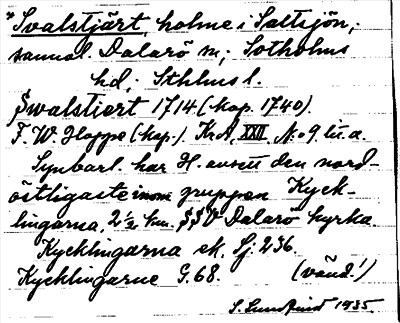 "Svalstjärt, holme i Saltsjön,
samma l. Dalarö sn; Sotholms
hd; Sthlms l.
Swalstiert 1714 (kop. 1740).
F. W. Hoppe (kop.). KrA, XXII, No 9 lit. a.
Synbarl. har H. avsett den nord-
östligaste inom gruppen Kyck-
lingarna, 2 1/2 km. SSV Dalarö kyrka.
Kycklingarna ek. Sj. 236.
Kycklingarne G. 68. (vänd!)
S. Lundquist 1935